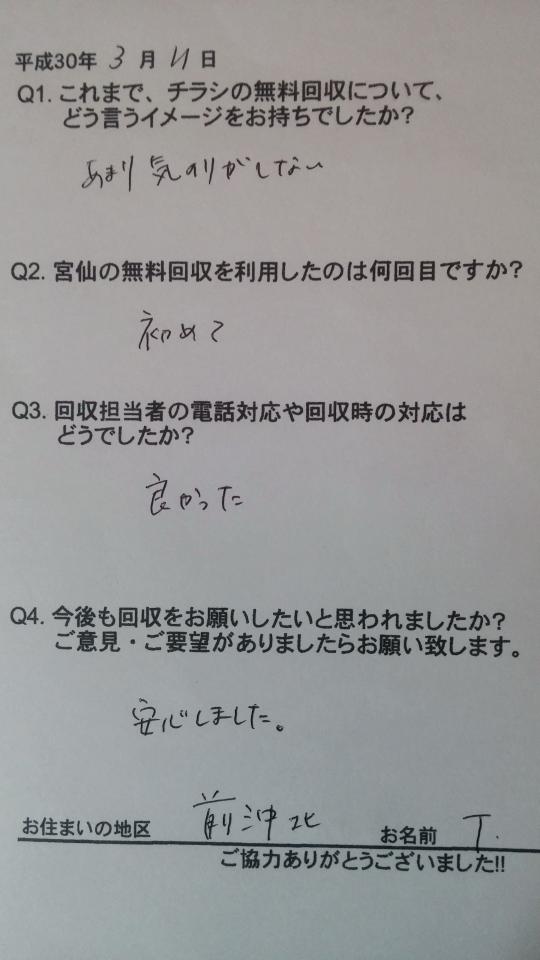 平成30年 3月 11日
Q1. これまで、チラシの無料回収について、
どう言うイメージをお持ちでしたか?
あまり気のりがしない
Q2. 宮仙の無料回収を利用したのは何回目ですか?
初めて
Q3. 回収担当者の電話対応や回収時の対応は
どうでしたか?
良かった
Q4. 今後も回収をお願いしたいと思われましたか?
ご意見・ご要望がありましたらお願い致します。
安心しました。
お住まいの地区 前沖北 お名前 T.
ご協力ありがとうございました!!